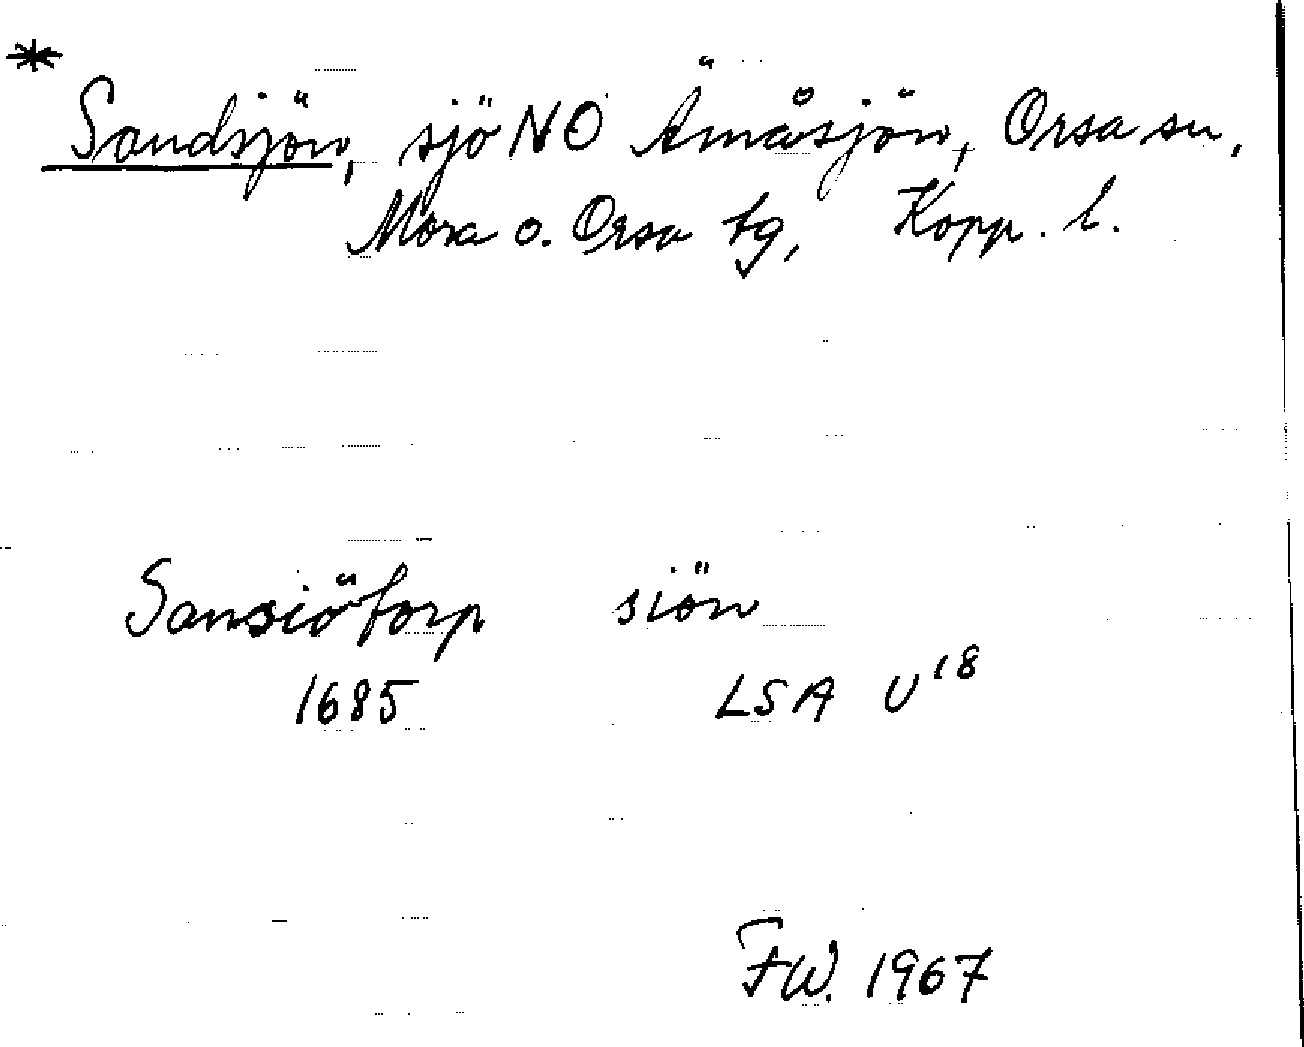 *
Sandsjön, sjö NO Ämåsjön, Orsa sn,
Mora o. Orsa tg, Kopp. l.
Sansiötorp siön
1685 LSA U18
F.W. 1967